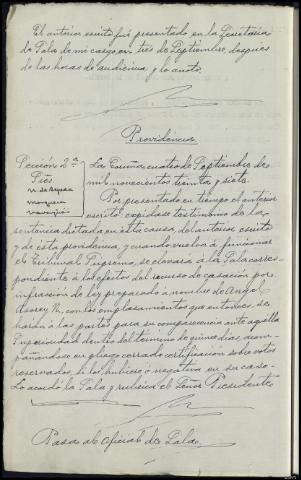 El anterior escrito fué presentado en la Secretaria
de Sala de mi cargo, en tres de Septiembre, despues
de las horas de audiencia y lo anoto.
Providencia
Sección 2ª
Pres.
La Coruña, cuatro de Septiembre de
mil novecientos treinta y siete.
Por presentado en tiempo el anterior
escrito expidase testimonio de la
sentencia dictada en esta causa, del anterior escrito
y de esta providencia, y cuando vuelva á funcionar
el Tribunal Supremo, se elevará á la Sala corres-
pondiente á los efectos del recurso de casación por
infracción de ley preparado á nombre de Angel
Asorey N, con los emplazamientos que entonces se
harán á las partes para su comparecencia ante aquella
Superioridad dentro del término de quince dias, acom-
pañandose en pliego cerrado certificación sobre votos
reservados, si los hubiese ó negativa en su caso.-
Lo acordó la Sala y rubrica el Señor Presidente
Pasa al Oficial de Sala.